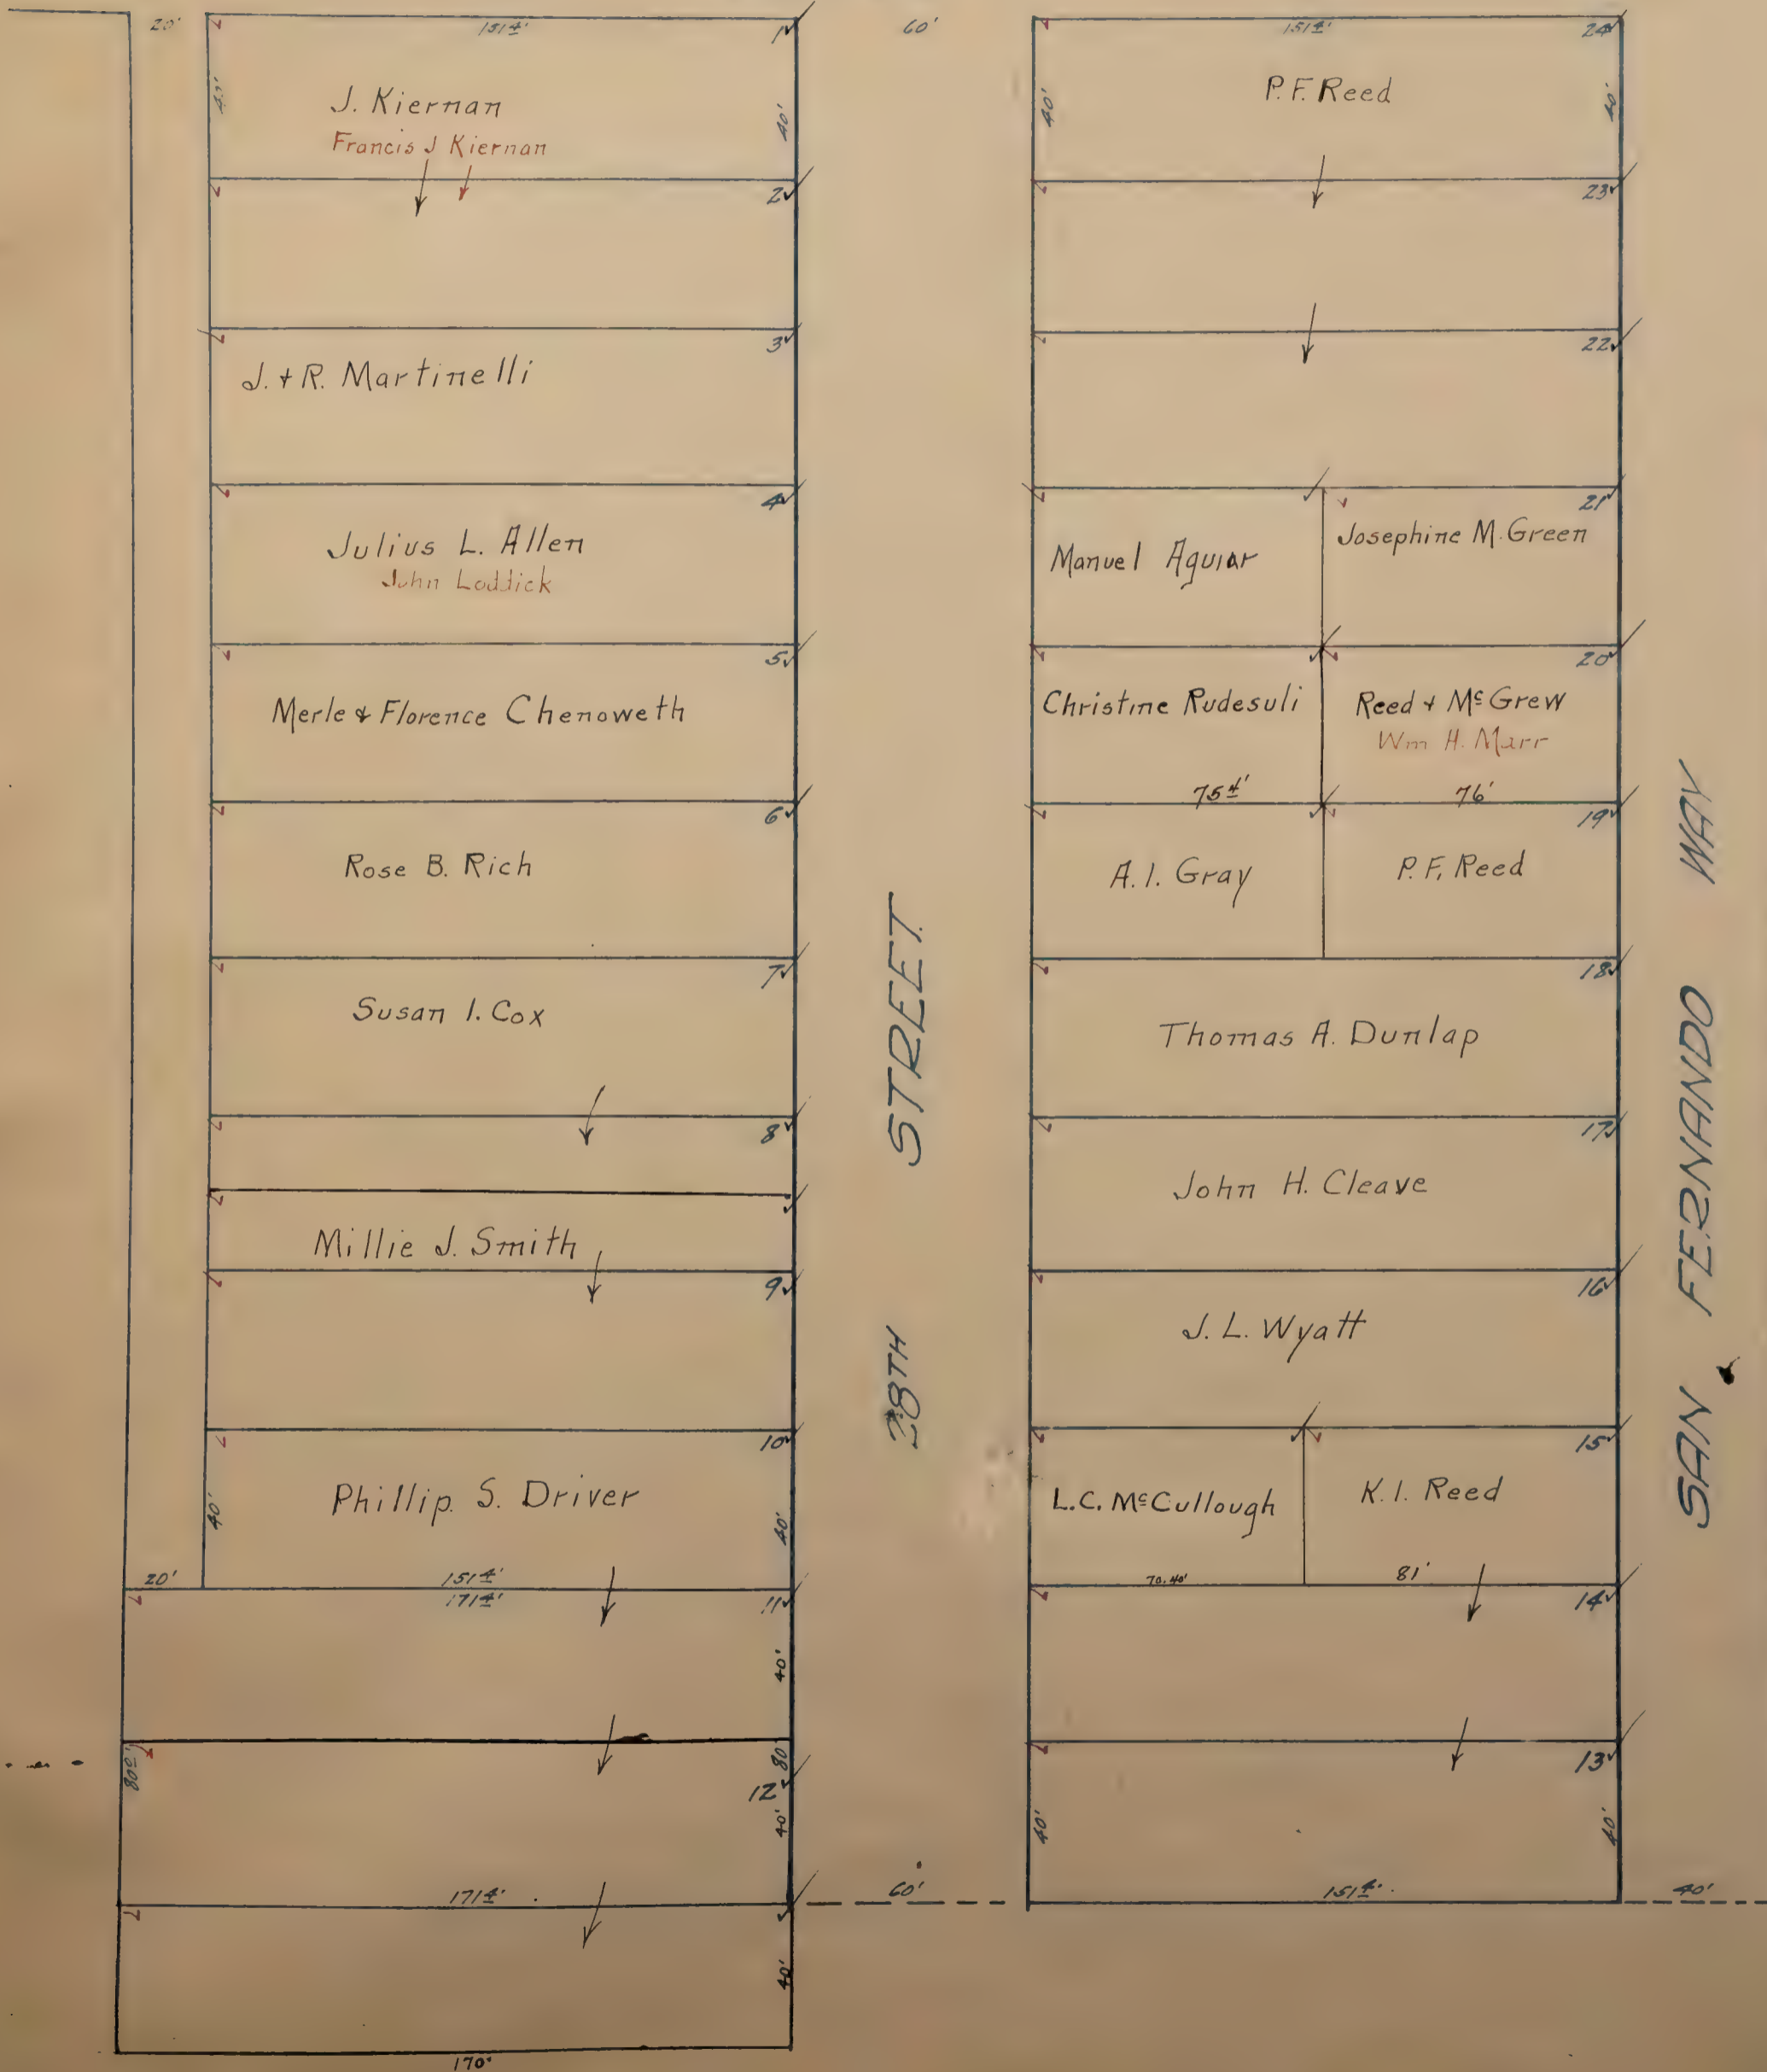 20'
151 4'
1
40'
40'
J. Kiernan
Francis J Kiernan
2
3
J. + R. Martinelli
4
Julius L. Allen
John Loddick
5
Merle & Florence Chenoweth
6
Rose B. Rich
7
Susan I. Cox
8
Millie J. Smith
9
10
Phillip. S. Driver
40'
40'
20'
151 4'
171 4'
11
40'
80 0'
80
12
40'
171 4'
40'
170'
60'
28TH STREET
60'
151 4'
24
40'
40'
P. F. Reed
23
22
21
Manuel Aguiar
Josephine M. Green
20
Christine Rudesuli
Reed + McGrew
Wm H. Marr
75 4'
76'
19
A. I. Gray
P. F. Reed
18
Thomas A. Dunlap
17
John H. Cleave
16
J. L. Wyatt
15
L. C. McCullough
K. I. Reed
70.40'
81'
14
13
40'
40'
151 4'
40'
SAN FERNANDO WAY